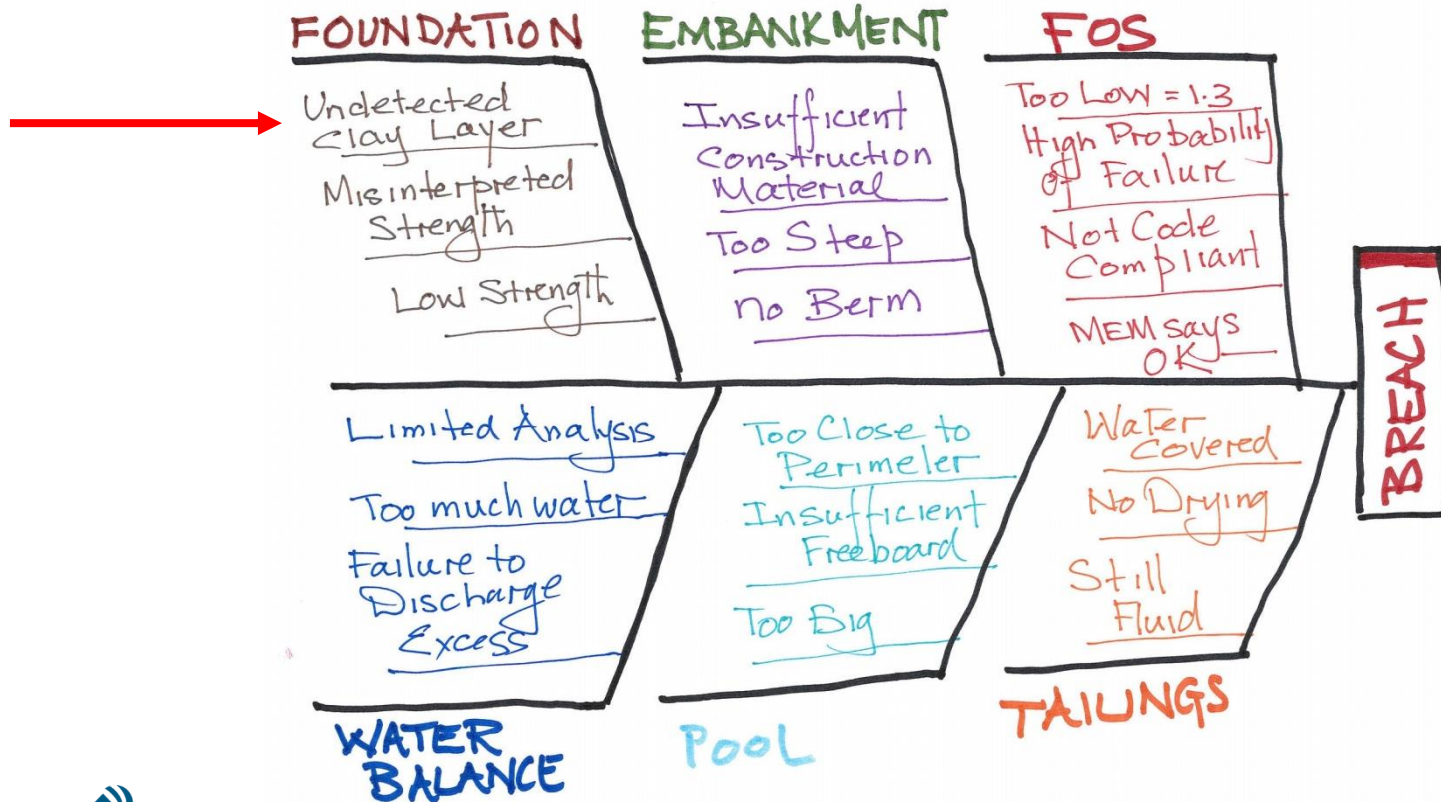 FOUNDATION
Undetected
Clay Layer
Misinterpreted
Strength
Low Strength
EMBANKMENT
Insufficient
Construction
Material
Too Steep
no Berm
FOS
Too Low = 1.3
High Probability
of Failure
Not Code
Compliant
MEM says
OK
BREACH
Limited Analysis
Too much water
Failure to
Discharge
Excess
WATER
BALANCE
Too Close to
Perimeter
Insufficient
Freeboard
Too Big
POOL
Water
Covered
No Drying
Still
Fluid
TAILINGS